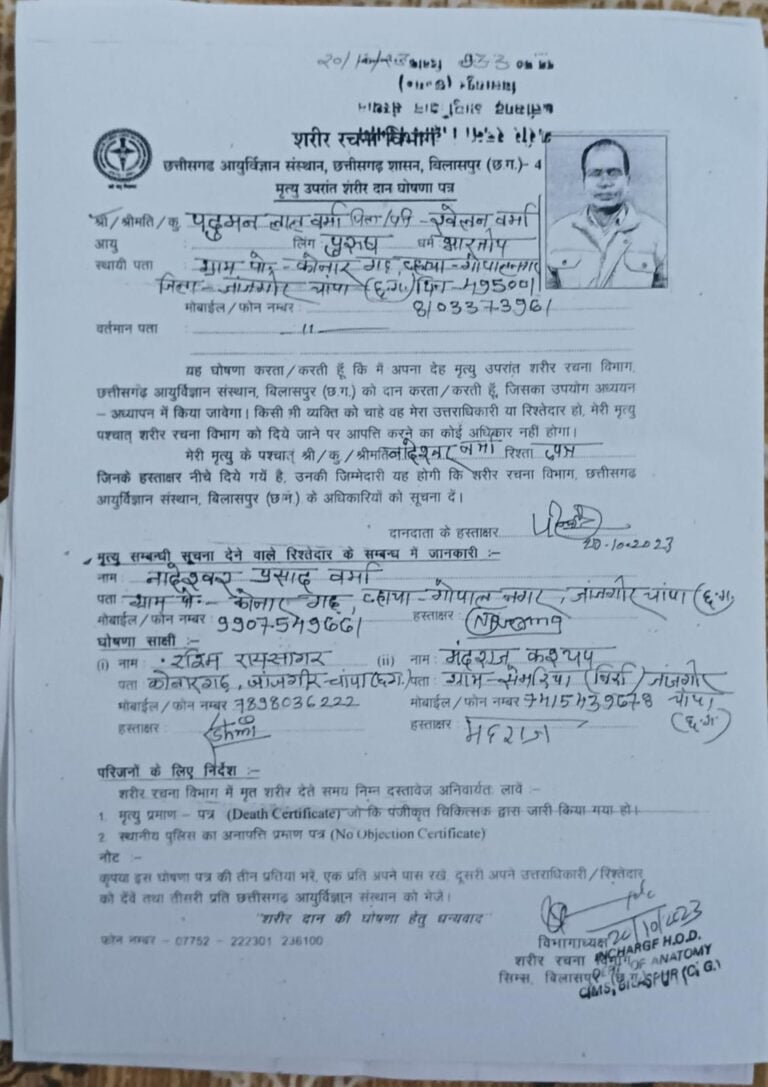 शरीर रचना विभाग
छत्तीसगढ़ आयुर्विज्ञान संस्थान, छत्तीसगढ़ शासन, बिलासपुर (छ.ग.)- 4
मृत्यु उपरांत शरीर दान घोषणा पत्र
श्री/श्रीमति/कु. पदुमन लाल वर्मा पिता/पति - खेलन वर्मा
आयु लिंग पुरुष धर्म भारतीय
स्थायी पता ग्राम पो.- कोनार गढ़, व्हाया - गोपालनगर
जिला - जांजगीर चांपा (छ.ग.) पिन-495001
मोबाईल/फोन नम्बर 8103373961
वर्तमान पता —॥—
यह घोषणा करता/करती हूँ कि मैं अपना देह मृत्यु उपरांत शरीर रचना विभाग,
छत्तीसगढ़ आयुर्विज्ञान संस्थान, बिलासपुर (छ.ग.) को दान करता/करती हूँ, जिसका उपयोग अध्ययन
– अध्यापन में किया जावेगा। किसी भी व्यक्ति को चाहे वह मेरा उत्तराधिकारी या रिश्तेदार हो, मेरी मृत्यु
पश्चात् शरीर रचना विभाग को दिये जाने पर आपत्ति करने का कोई अधिकार नहीं होगा।
मेरी मृत्यु के पश्चात् श्री/कु./श्रीमति वर्मा रिश्ता पुत्र
जिनके हस्ताक्षर नीचे दिये गयें है, उनकी जिम्मेदारी यह होगी कि शरीर रचना विभाग, छत्तीसगढ़
आयुर्विज्ञान संस्थान, बिलासपुर (छ.ग.) के अधिकारियों को सूचना दें।
दानदाता के हस्ताक्षर
20-10-2023
मृत्यु सम्बन्धी सूचना देने वाले रिश्तेदार के सम्बन्ध में जानकारी :–
नाम: नादेश्वर प्रसाद वर्मा
पता ग्राम पो.- कोनार गढ़, व्हाया - गोपाल नगर, जांजगीर चांपा (छ.ग.
मोबाईल/फोन नम्बर: 9907549661 हस्ताक्षर:
घोषणा साक्षी :–
(i) नाम : रश्मि रायसागर (ii) नाम: मंदराज कश्यप
पता कोनारगढ़, जांजगीर-चांपा (छ.ग.) पता: ग्राम- सेमरिया (बिर्रा) जांजगीर
मोबाईल/फोन नम्बर 7898036222 मोबाईल/फोन नम्बर 7415439678 चांपा
(छ.ग)
हस्ताक्षर : हस्ताक्षर : मदराज
परिजनों के लिए निर्देश :–
शरीर रचना विभाग में मृत शरीर देते समय निम्न दस्तावेज अनिवार्यतः लावें :–
1. मृत्यु प्रमाण – पत्र (Death Certificate) जो कि पंजीकृत चिकित्सक द्वारा जारी किया गया हो।
2. स्थानीय पुलिस का अनापत्ति प्रमाण पत्र (No Objection Certificate)
नोट :–
कृपया इस घोषणा पत्र की तीन प्रतिया भरें, एक प्रति अपने पास रखें, दूसरी अपने उत्तराधिकारी/रिश्तेदार
को देंवें तथा तीसरी प्रति छत्तीसगढ़ आयुर्विज्ञान संस्थान को भेजें।
"शरीर दान की घोषणा हेतु धन्यवाद"
फोन नम्बर – 07752 – 222301 236100
20/10/2023
विभागाध्यक्ष
INCHARGE H.O.D.
शरीर रचना विभाग
DEPT OF ANATOMY
सिम्स, बिलासपुर (छ.ग.)
CIMS, BILASPUR (C.G.)